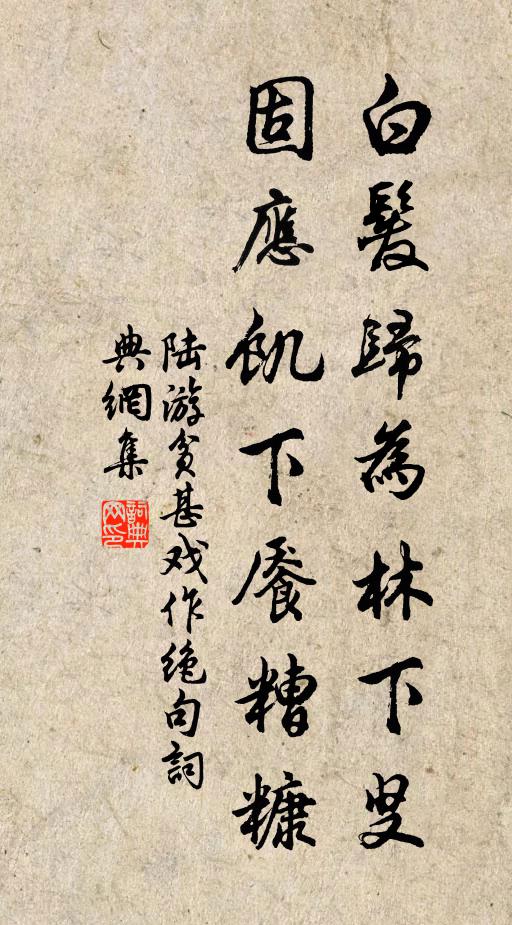 白髮歸為林下叟
固應飢下饜糟糠
陆游贫甚戏作绝句詞
典網集
詞典网印